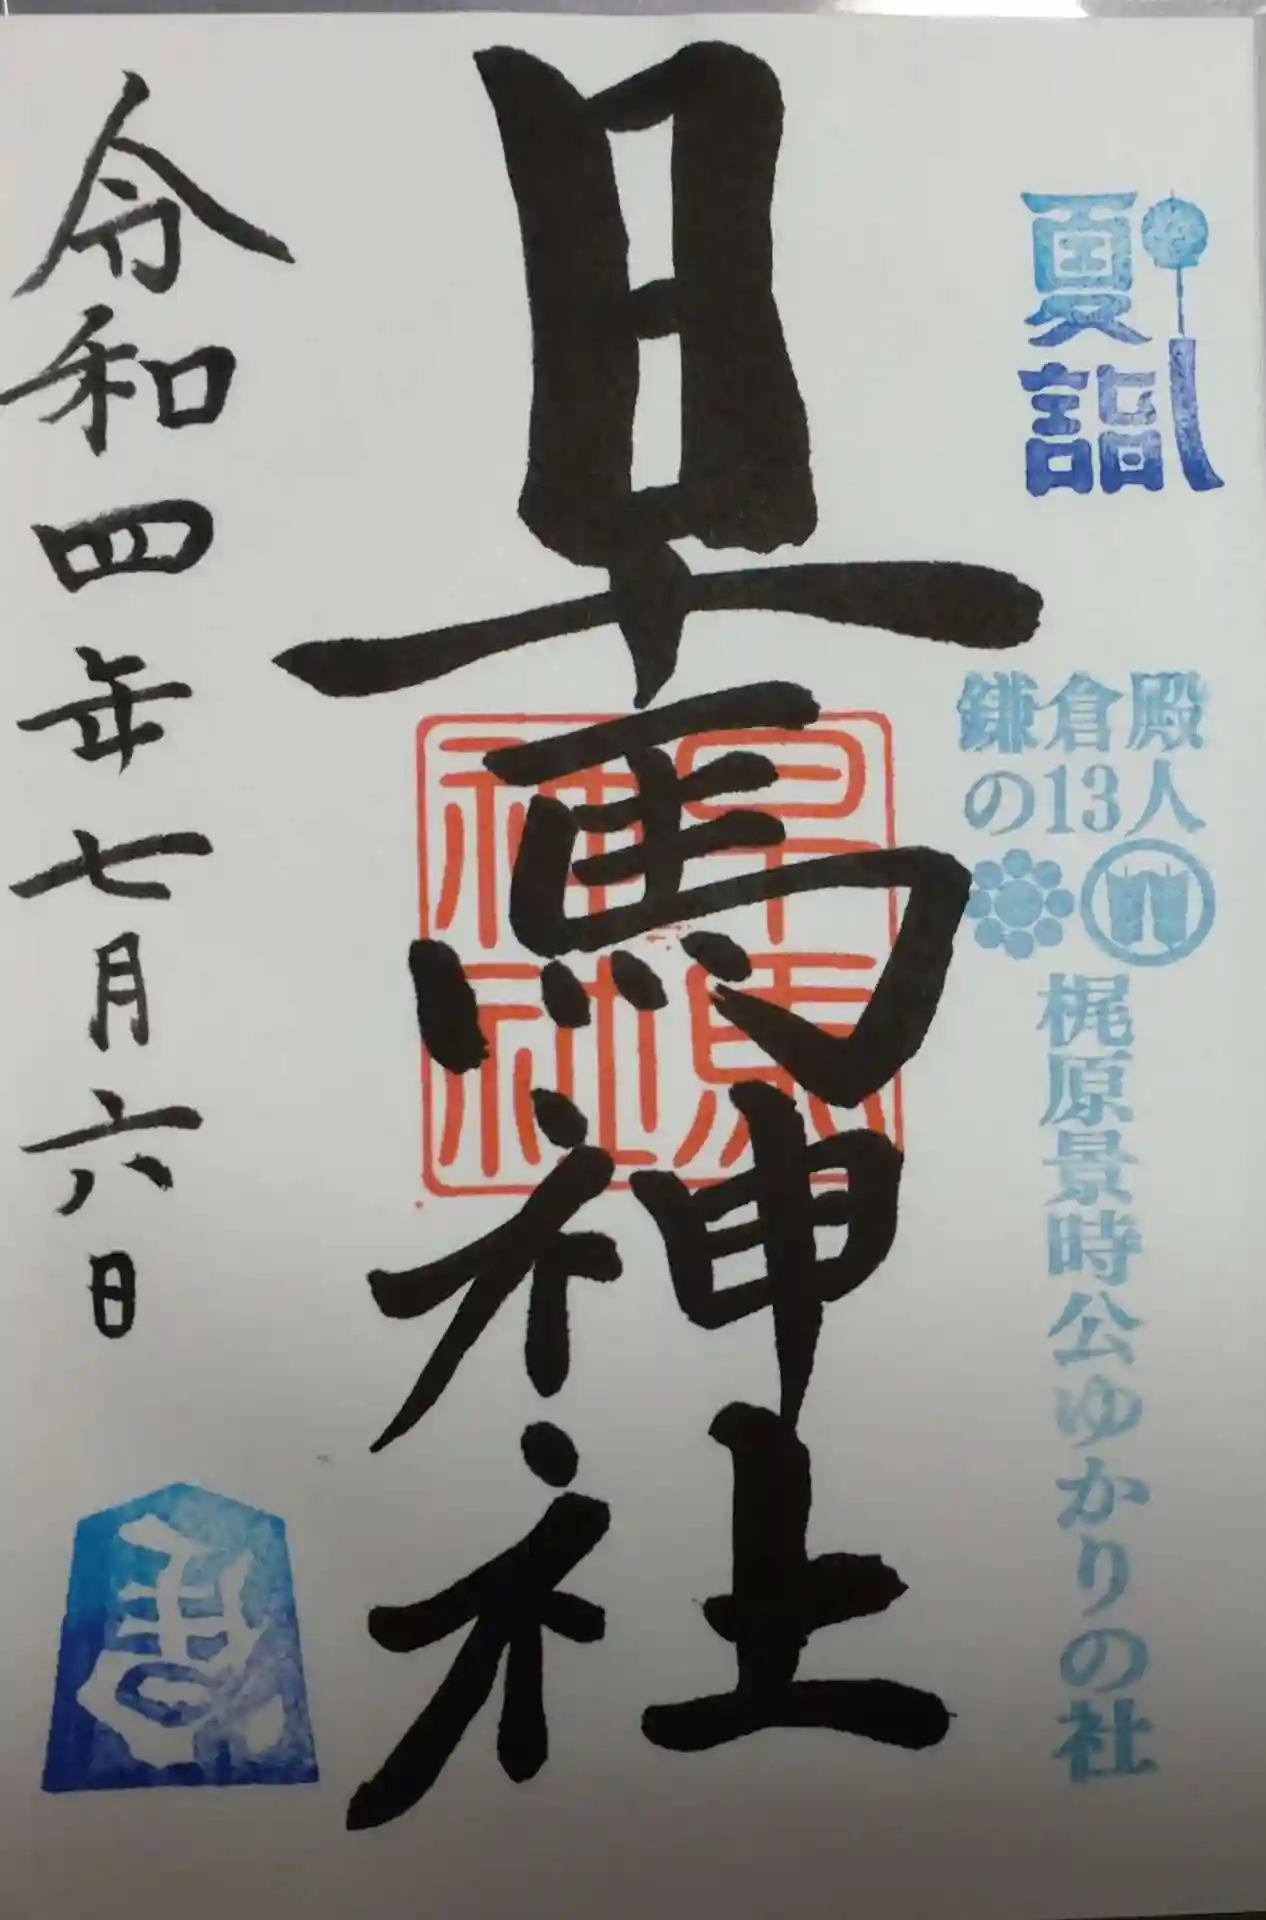 夏詣
鎌倉殿
の13人
梶原景時公ゆかりの社
早馬神社
早馬
神社
令和四年七月六日